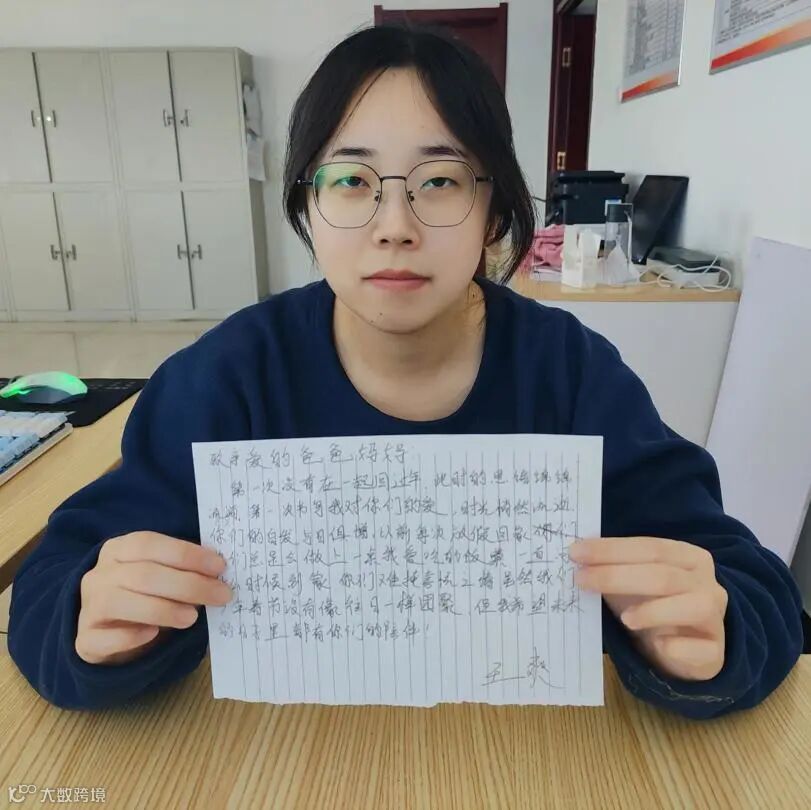 致亲爱的爸爸妈妈:
第一次没有在一起回过年,此时的思绪
第一次书写我对你们的爱,时光悄然流逝
你们的白发与日俱增,以前每次放假回家你们
总是会做上一桌我爱吃的饭菜,一直
时候到家,你们
春节没有像往日一样团聚,但我希望未来
的日子里都有你们的陪伴!
王爽
大数跨境